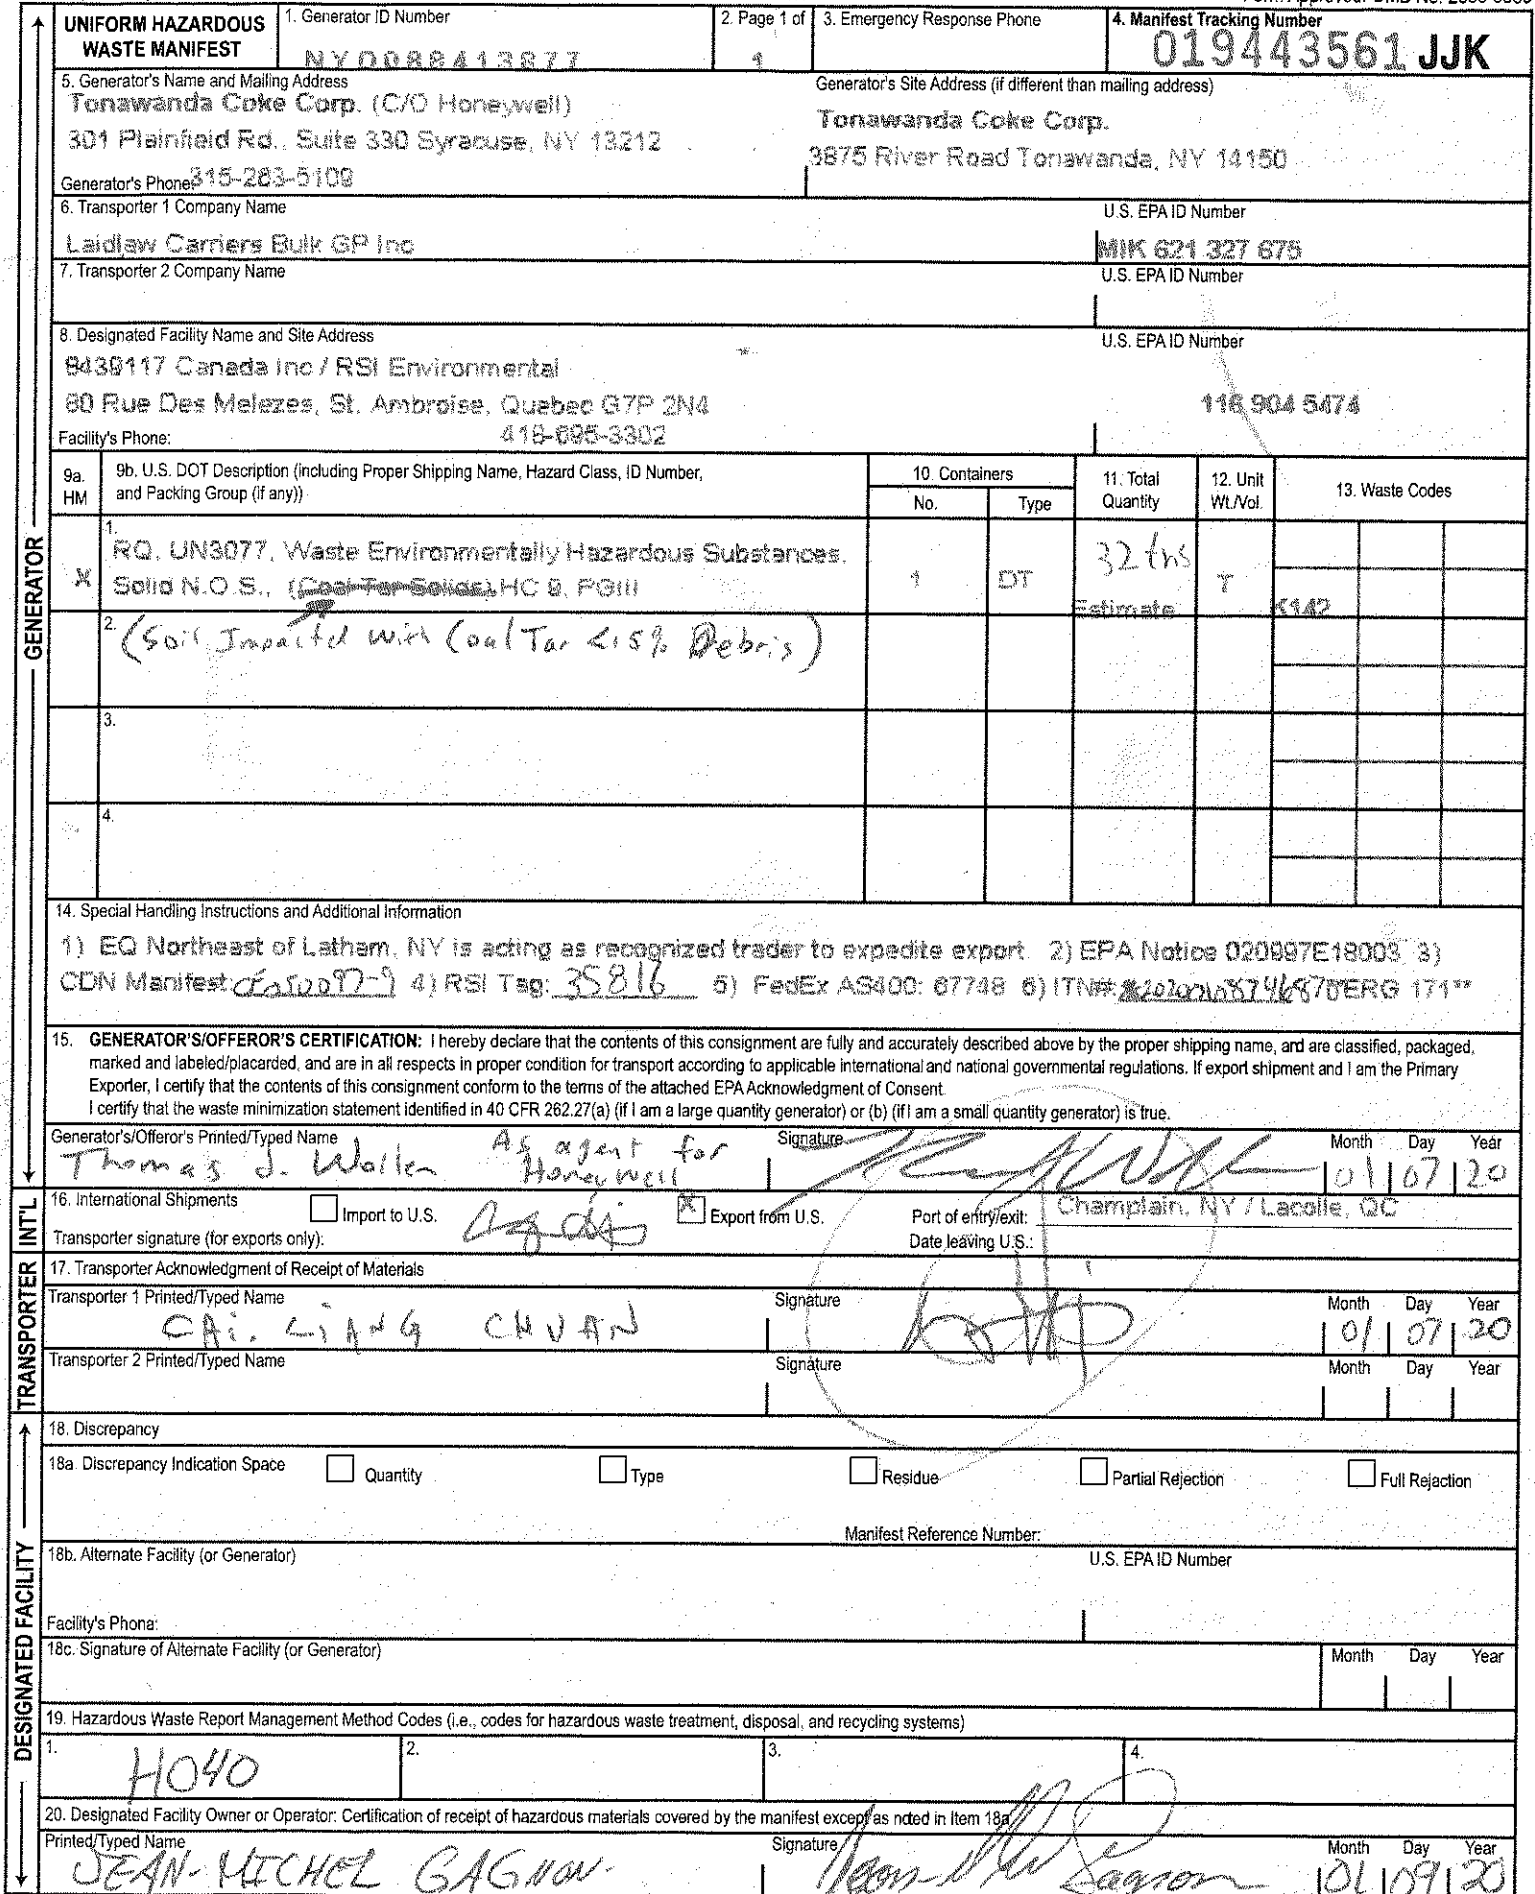 UNIFORM HAZARDOUS WASTE MANIFEST
1. Generator ID Number
NYD088413877
2. Page 1 of
1
3. Emergency Response Phone
4. Manifest Tracking Number
019443561 JJK
5. Generator's Name and Mailing Address
Tonawanda Coke Corp. (C/O Honeywell)
301 Plainfield Rd., Suite 330 Syracuse, NY 13212
Generator's Phone: 315-283-5109
Generator's Site Address (if different than mailing address)
Tonawanda Coke Corp.
3875 River Road Tonawanda, NY 14150
6. Transporter 1 Company Name
Laidlaw Carriers Bulk GP Inc
U.S. EPA ID Number
MIK 621 327 675
7. Transporter 2 Company Name
U.S. EPA ID Number
8. Designated Facility Name and Site Address
8439117 Canada Inc / RSI Environmental
80 Rue Des Melezes, St. Ambroise, Quebec G7P 2N4
Facility's Phone: 418-695-3302
U.S. EPA ID Number
116 904 5474
9a. HM
9b. U.S. DOT Description (including Proper Shipping Name, Hazard Class, ID Number, and Packing Group (if any))
10. Containers
No.
Type
11. Total Quantity
12. Unit Wt./Vol.
13. Waste Codes
X
1.
RQ, UN3077, Waste Environmentally Hazardous Substances,
Solid N.O.S., (Coal Tar Solids) HC 9, PGIII
1
DT
32 tns
Estimate
T
K142
2.
(Soil Impacted with Coal Tar <15% Debris)
3.
4.
14. Special Handling Instructions and Additional Information
1) EQ Northeast of Latham, NY is acting as recognized trader to expedite export 2) EPA Notice 020997E18003 3)
CDN Manifest: 4) RSI Tag: 35816 5) FedEx AS400: 67748 6) ITN#: ERG 171**
15. GENERATOR'S/OFFEROR'S CERTIFICATION: I hereby declare that the contents of this consignment are fully and accurately described above by the proper shipping name, and are classified, packaged,
marked and labeled/placarded, and are in all respects in proper condition for transport according to applicable international and national governmental regulations. If export shipment and I am the Primary
Exporter, I certify that the contents of this consignment conform to the terms of the attached EPA Acknowledgment of Consent.
I certify that the waste minimization statement identified in 40 CFR 262.27(a) (if I am a large quantity generator) or (b) (if I am a small quantity generator) is true.
Generator's/Offeror's Printed/Typed Name
Thomas J. Wallen As agent for Honeywell
Signature
Month Day Year
01 07 20
16. International Shipments
Import to U.S.
X Export from U.S.
Port of entry/exit: Champlain, NY / Lacolle, QC
Transporter signature (for exports only):
Date leaving U.S.:
17. Transporter Acknowledgment of Receipt of Materials
Transporter 1 Printed/Typed Name
CAi. LiANG CHUAN
Signature
Month Day Year
01 07 20
Transporter 2 Printed/Typed Name
Signature
Month Day Year
18. Discrepancy
18a. Discrepancy Indication Space
Quantity
Type
Residue
Partial Rejection
Full Rejection
Manifest Reference Number:
18b. Alternate Facility (or Generator)
U.S. EPA ID Number
Facility's Phone:
18c. Signature of Alternate Facility (or Generator)
Month Day Year
19. Hazardous Waste Report Management Method Codes (i.e., codes for hazardous waste treatment, disposal, and recycling systems)
1. H040
2.
3.
4.
20. Designated Facility Owner or Operator: Certification of receipt of hazardous materials covered by the manifest except as noted in Item 18a
Printed/Typed Name
JEAN-MICHEL GAGNON
Signature
Month Day Year
01 09 20
GENERATOR
INT'L
TRANSPORTER
DESIGNATED FACILITY